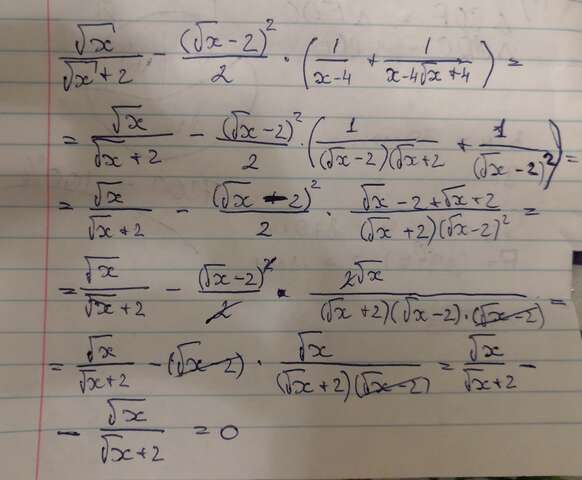 √x/(√x+2) − (√x−2)²/2 · (1/(x−4) + 1/(x−4√x+4)) =
= √x/(√x+2) − (√x−2)²/2 · (1/((√x−2)(√x+2) + 1/(√x−2)²) =
= √x/(√x+2) − (√x−2)²/2 · (√x−2+√x+2)/((√x+2)(√x−2)²) =
= √x/(√x+2) − (√x−2)²/2 · 2√x/((√x+2)(√x−2)·(√x−2)) =
= √x/(√x+2) − (√x−2) · √x/((√x+2)(√x−2)) = √x/(√x+2) −
− √x/(√x+2) = 0